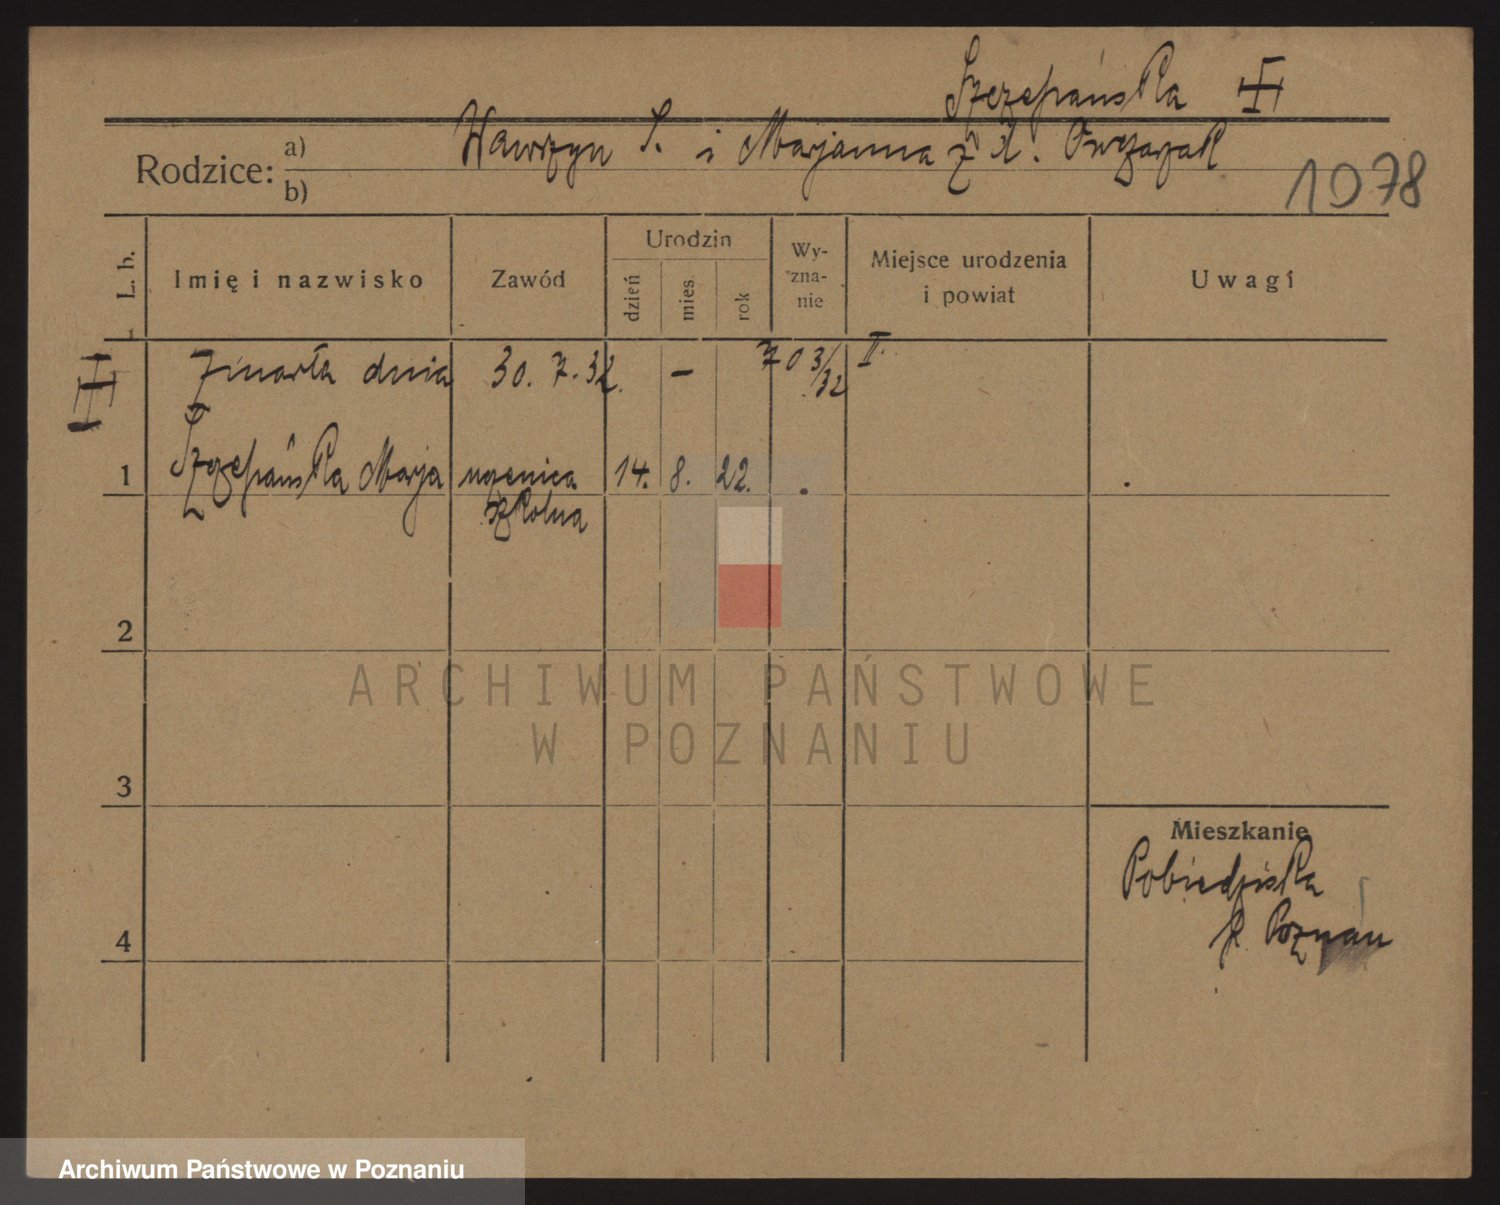 Szczepańska
Rodzice:
a) Wawrzyn S. i Marjanna z d. Owczarzak
b)
1078
L. b.
Imię i nazwisko
Zawód
Urodzin
dzień
mies.
rok
Wy-
zna-
nie
Miejsce urodzenia
i powiat
Uwagi
zmarła dnia 30. 7. 32. – 703/32 II.
1 Szczepańska Marja uczenica 14. 8. 22.
szkolna
2
ARCHIWUM PAŃSTWOWE
W POZNANIU
3
Mieszkanie
Pobiedziska
p. Poznań
4
Archiwum Państwowe w Poznaniu